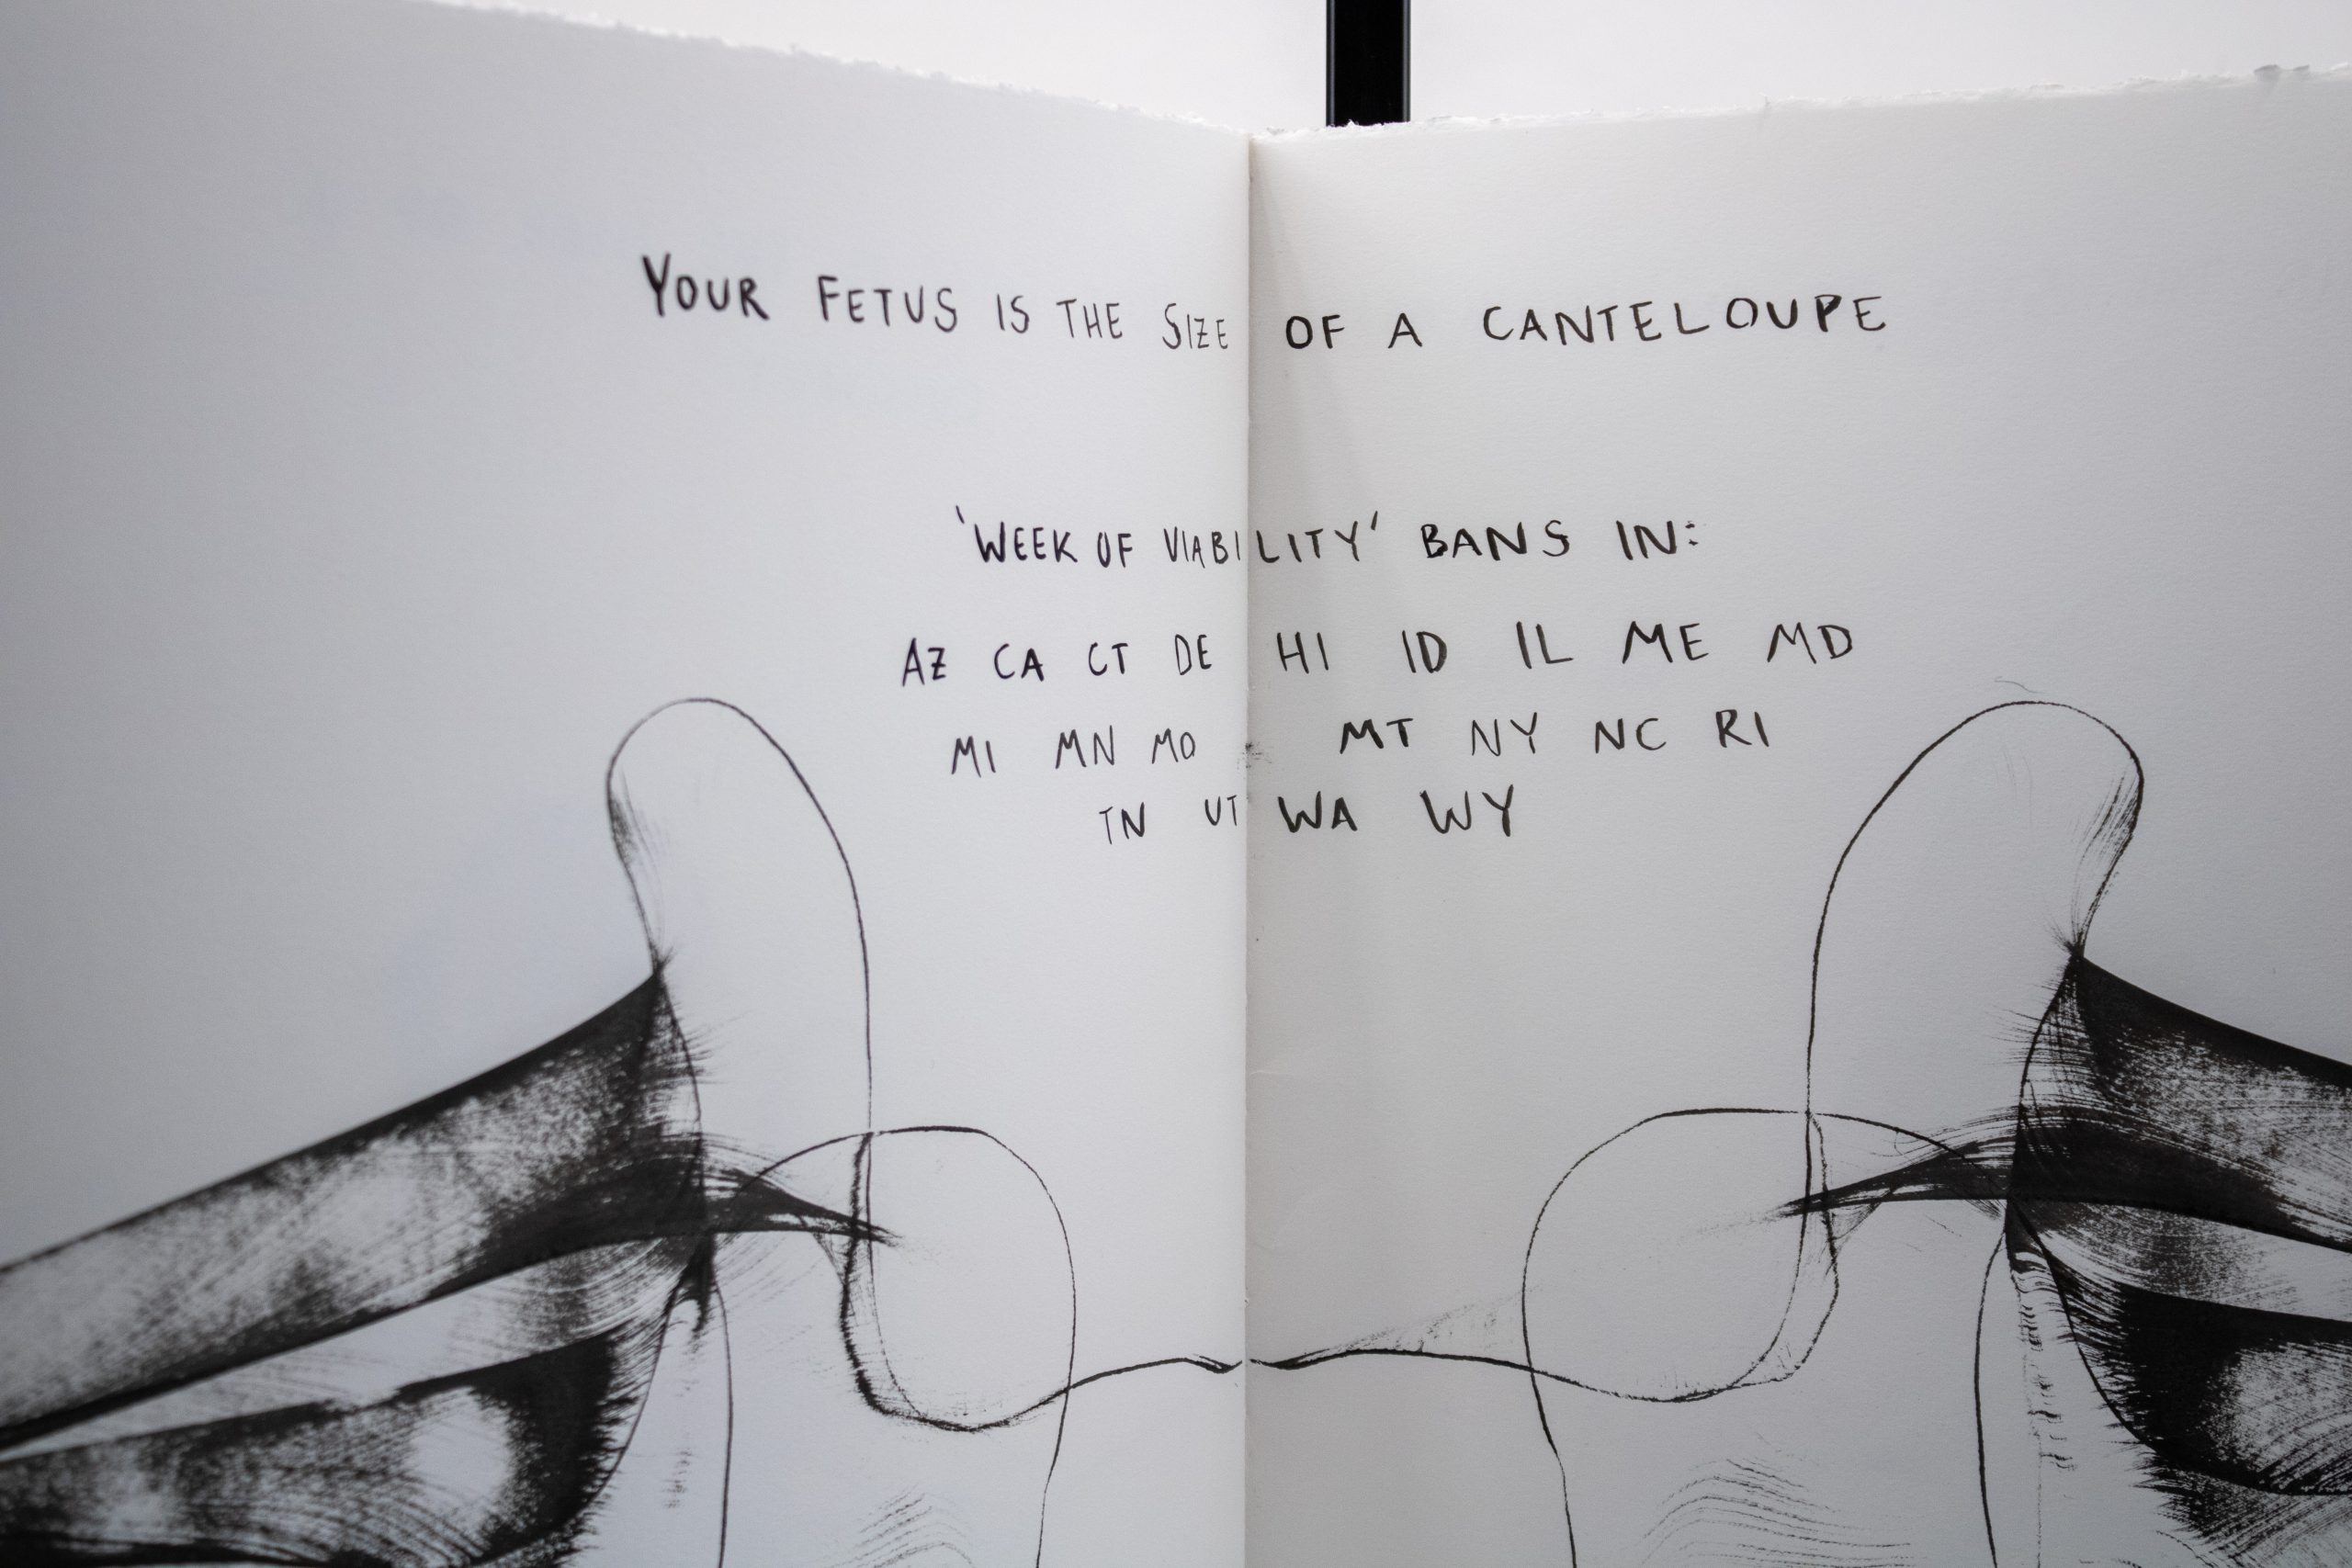 YOUR FETUS IS THE SIZE OF A CANTELOUPE
'WEEK OF VIABILITY' BANS IN:
AZ CA CT DE HI ID IL ME MD
MI MN MO MT NY NC RI
TN UT WA WY